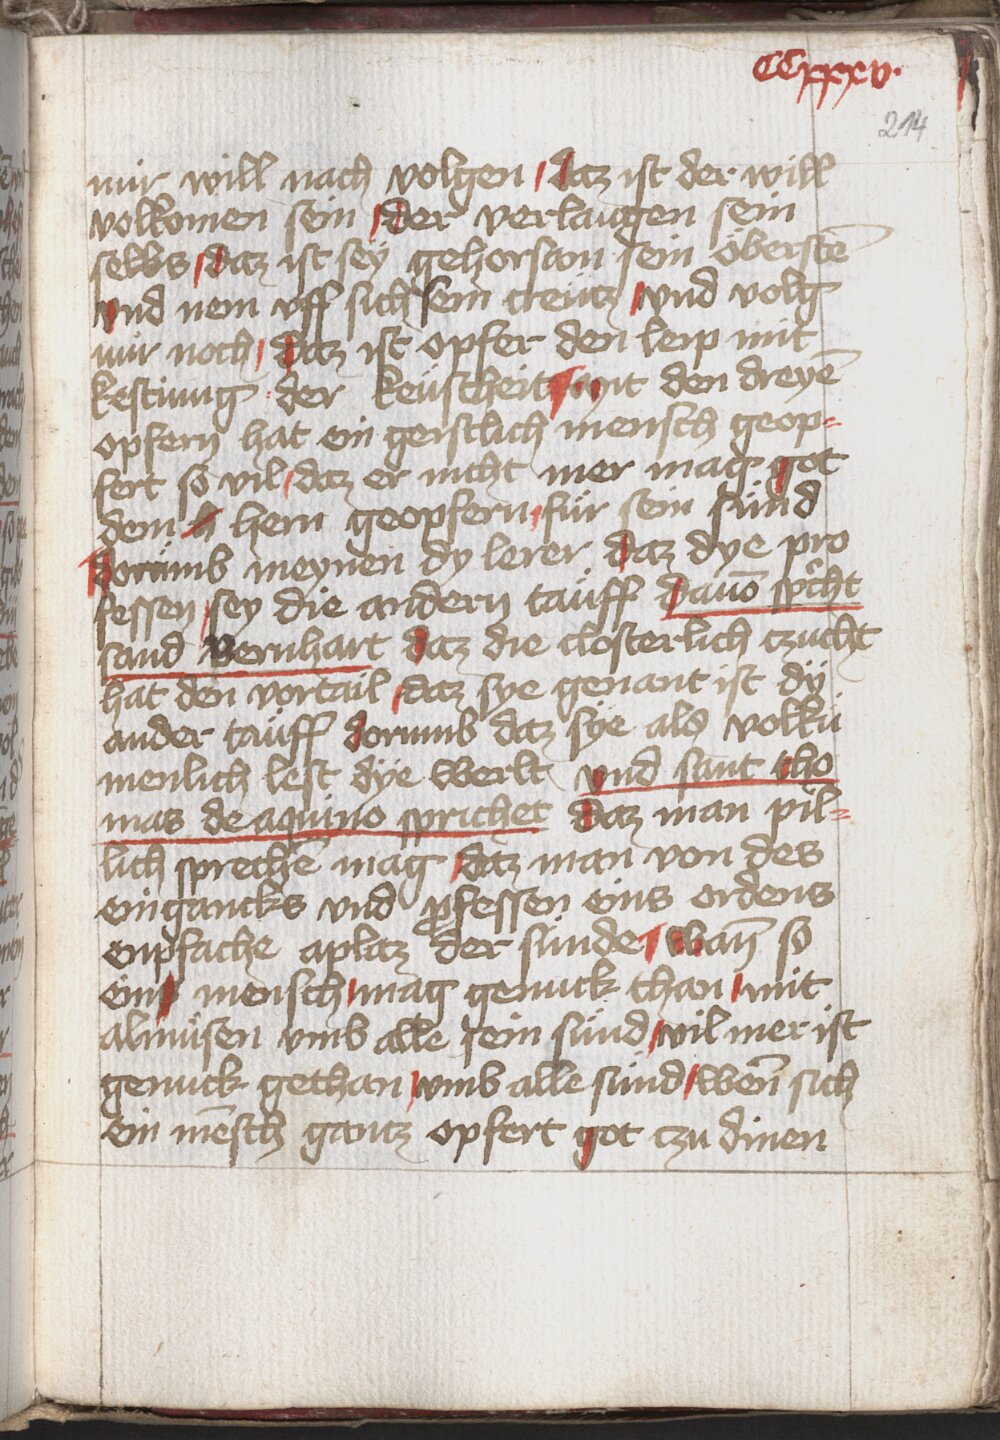 CCxxxv.
214
mir will nach volgen / daz ist der will
volkomen sein / der verlaugen sein
selbs / daz ist sey gehorsam sein öberstē
vnd nem vff sich sein creütz / vnd volg
mir noch / daz ist opfer den leip mit
kestiung der keüscheit / mit den dreyē
opfern hat ein geistlich mensch geop-
fert so vil / daz er nicht mer mag got
dem h hern geopfern / für sein sünd
dorümb meynen dy lerer daz dye pro
fessen / sey die andern taüff dauō spͨcht
sand Bernhart daz die closterlich czucht
hat den vortail / daz sye genant ist dÿ
ander taüff dorumb daz sÿe als volkū
menlich lest dÿe werlt vnd sant tho
mas de aquino sprichet daz man pil-
lich sprechē mag / daz man von des
eingancks vnd ꝓfessen eins ordens
enpfache aplaz der sünde / wan̄ so
ein mensch / mag genuck than / mit
almüsen vmb alle sein sünd / vil mer ist
genuck gethan / vmb alle sünd / wen̄ sich
ein mēsch gantz opfert got czu dinen